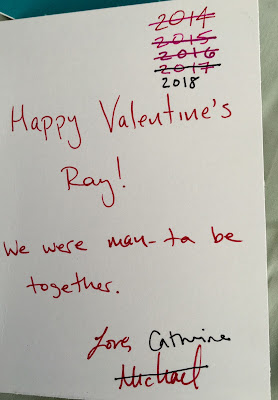 2014
2015
2016
2017
2018
Happy Valentine's
Ray!
We were man-ta be
together.
Love, Cathrine
Michael